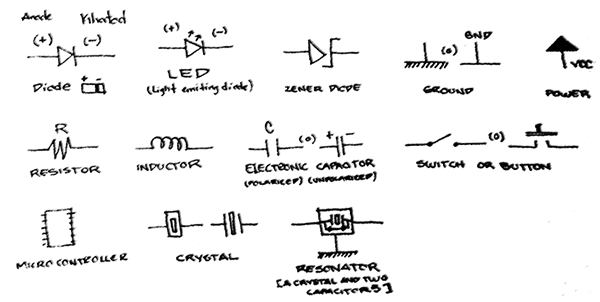 Anode Kihatod
(+) (-)
Diode + -
(+) (-)
LED
(Light emiting diode)
ZENER DIODE
(o) GND
GROUND
VCC
POWER
R
RESISTOR
INDUCTOR
C (o) + -
ELECTRONIC CAPACITOR
(POLARICED) (UNPOLARICED)
(o)
SWITCH OR BUTTON
MICROCONTROLLER
CRYSTAL
RESONATOR
[A CRYSTAL AND TWO
CAPACITORS]